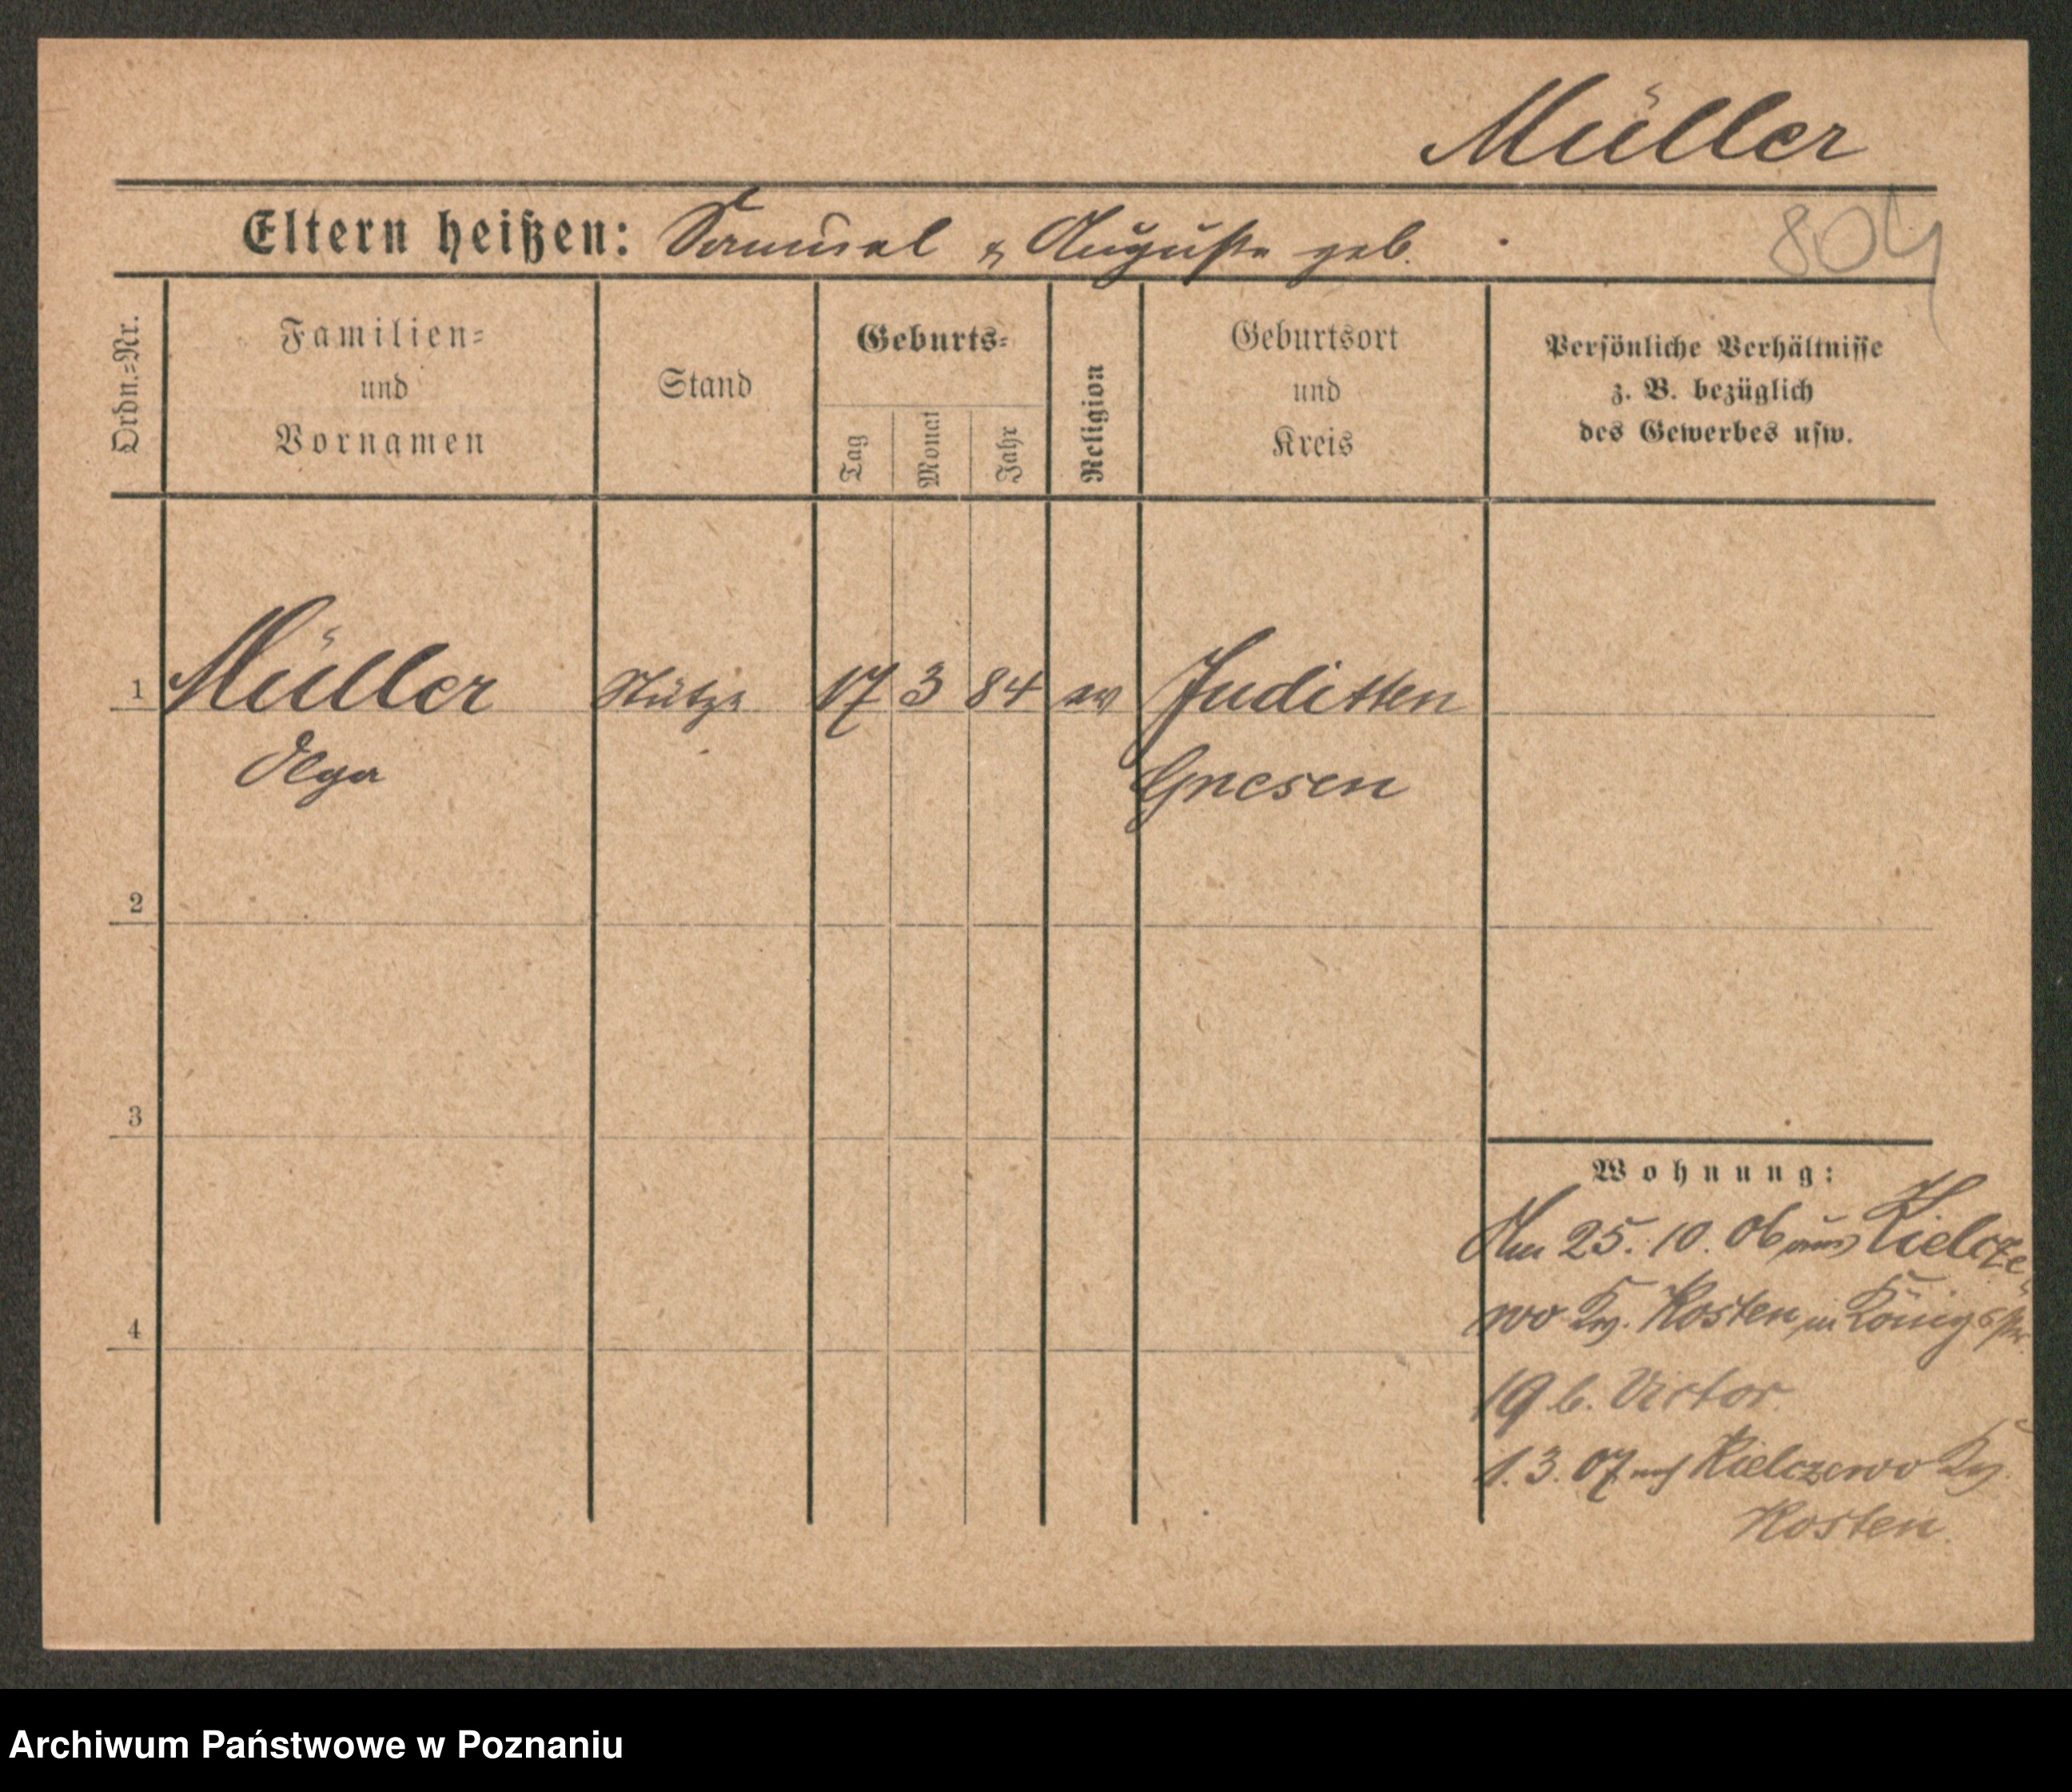 Müller
Eltern heißen: Samuel & Auguste geb.
804
Ordn.-Nr.
Familien-
und
Vornamen
Stand
Geburts-
Tag
Monat
Jahr
Religion
Geburtsort
und
Kreis
Persönliche Verhältnisse
z. B. bezüglich
des Gewerbes usw.
1 Müller Stütze 17 3 84 ev Juditten
Olga Gnesen
2
3
4
Wohnung:
Am 25. 10. 06 aus Kielcze-
wo Krs. Kosten in Königsstr.
19 b. Victor.
1. 3. 07 nach Kielczewo Krs.
Kosten.
Archiwum Państwowe w Poznaniu